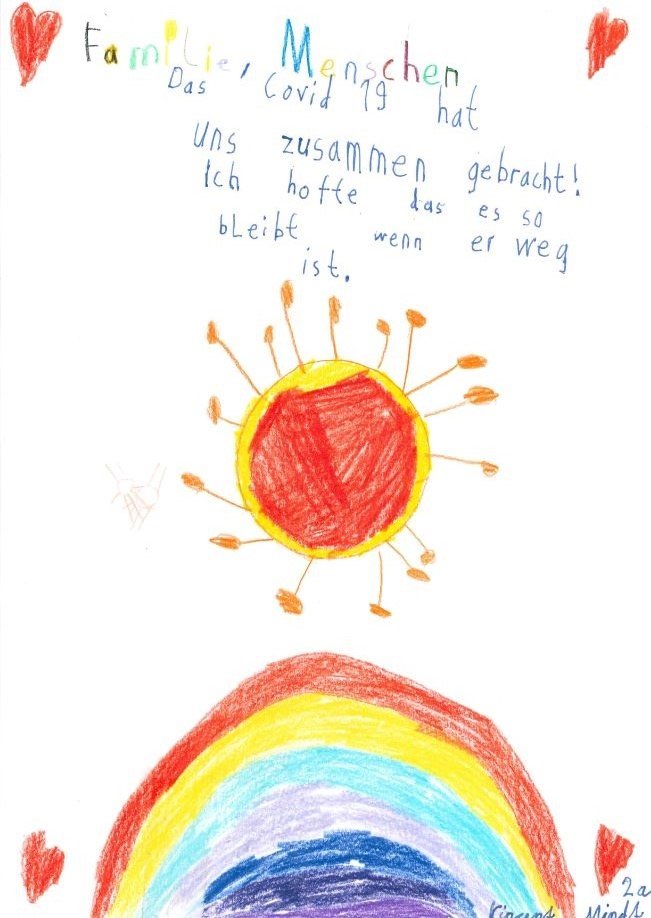 Familie, Menschen
Das Covid 19 hat
uns zusammen gebracht!
Ich hoffe das es so
bleibt wenn er weg
ist.
2a
Vincent